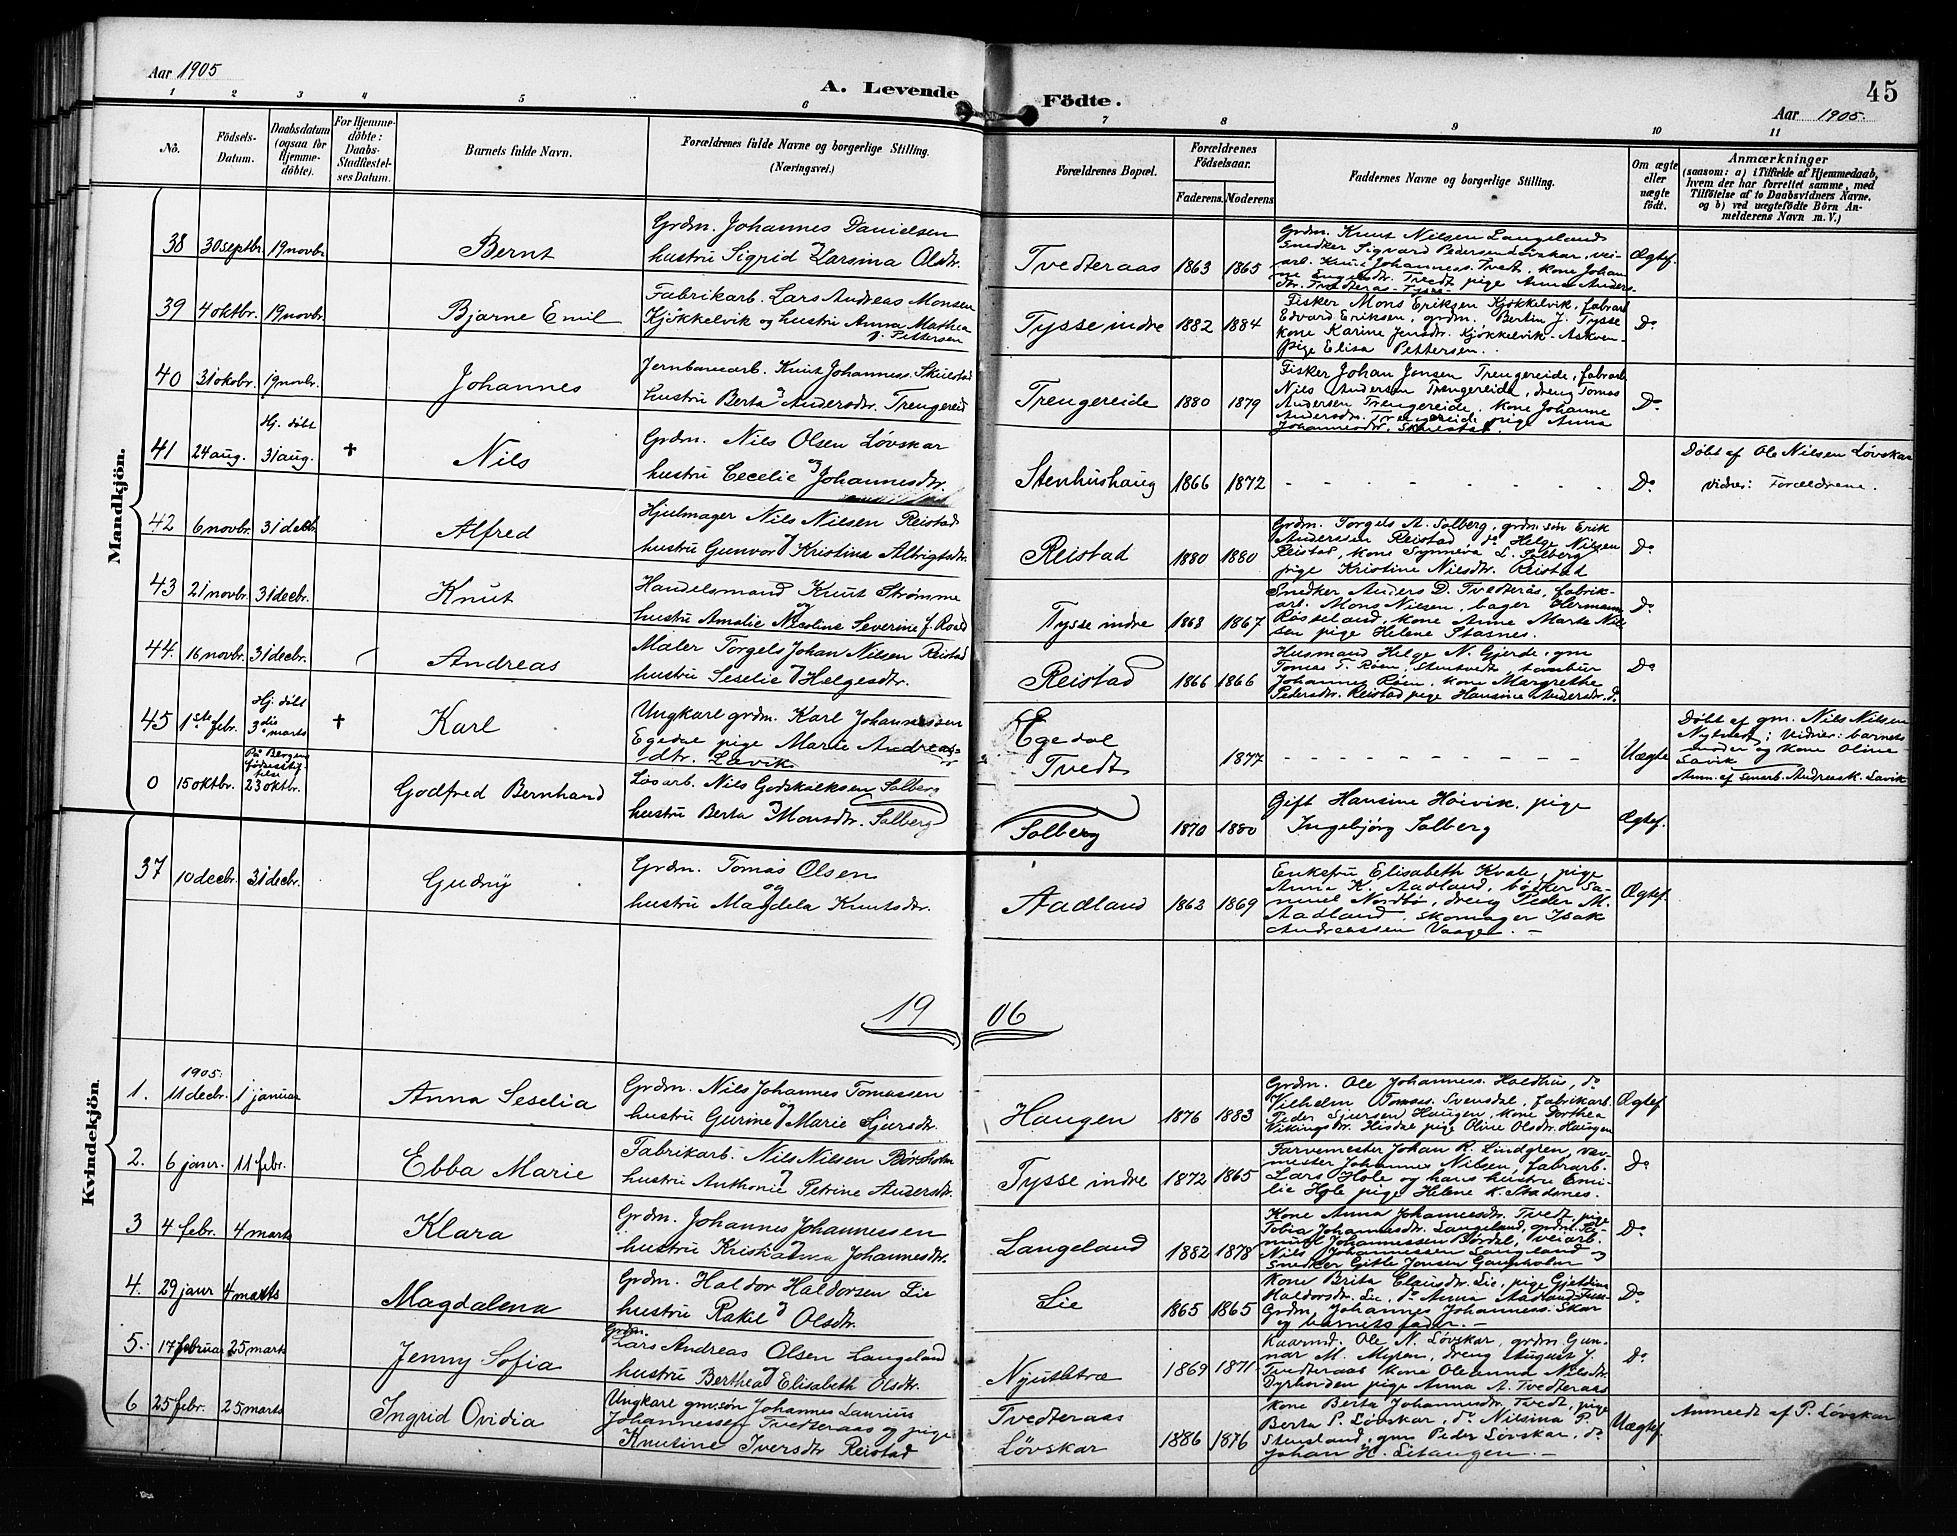 Aar 1905
A. Levende Födte.
45
Aar 1905.
1 2 3 4 5 6 7 8 9 10 11
Nô.
Födsels-Datum.
Daabsdatum (ogsaa for Hjemmedöbte).
For Hjemmedöbte: Daabs-Stadfestelses Datum.
Barnets fulde Navn.
Forældrenes fulde Navne og borgerlige Stilling. (Næringsvei.)
Forældrenes Bopæl.
Forældrenes Födselsaar.
Faderens. Moderens.
Faddernes Navne og borgerlige Stilling.
Om ægte eller uægte födt.
Anmærkninger
(saasom: a) i Tilfælde af Hjemmedaab, hvem der har forrettet samme, med Tilföielse af to Daabsvidners Navne. og b) ved uægtefödte Börn Anmelderens Navn m. V.)
Mandkjön.
38 30 septbr. 19 novbr. Bernt
Grdm. Johannes Danielsen
hustru Sigrid Larsina Olsdtr.
Tvedteraas 1863 1865
Grdm. Knut Nilsen Langeland
Snedker Sigvard Pedersen Løvskar, vei-
arb. Knut Johanness. Tvedt, kone Johan
Tvedt pige Anna Anders-
Ægtef.
39 4 oktbr. 19 novbr. Bjarne Emil
Fabrikarb. Lars Andreas Monsen
Kjøkkelvik og hustru Anna Mathea
f. Pettersen
Tysse indre 1882 1884
Fisker Mons Eriksen Kjøkkelvik, fabrarb
Edvard Eriksen, grdm. Bertin J. Tysse
kone Karine Jensdtr. Kjøkkelvik - Askøen -
pige Elisa Pettersen.
Do
40 31 oktbr. 19 novbr. Johannes
Jernbanearb. Knut Johanness. Skulstad
hustru Berta Andersdtr. Trengereid
Trengereide 1880 1879
Fisker Johan Jonsen Trengereide, fabrarb
Nils Andersen Trengereide, dreng Tomas
Andersen Trengereide, kone Johanne
Andersdtr. Trengereide pige Anna
Johannesdtr. Skulstad.
Do
41 24 aug. Hj. døbt 31 aug. + Nils
Grdm. Nils Olsen Løvskar
og
hustru Cecelie Johannesdtr.
Stenhushaug 1866 1872
- - - - - - - -
Do
Døbt af Ole Nilsen Løvskar
vidner: Forældrene.
42 6 novbr. 31 decbr. Alfred
Hjulmager Nils Nilsen Reistad
hustru Gunvor Kristina Albrigtsdtr.
Reistad 1880 1880
Grdm. Torgels A. Solberg, grdm. søn Erik
Anderssen Reistad do Helge Nilsen
Reistad, kone Synneva L. Solberg
pige Kristine Nilsdtr. Reistad
Do
43 21 novbr. 31 decbr. Knut
Handelsmand Knut Strømme
og
hustru Amalie Nicoline Severine f. Roald
Tysse indre 1863 1867
Snedker Anders D. Tvedteraas, fabrik-
arb. Mons Nilsen, bager Hermann
Røsseland, kone Anne Marta Nil-
sen pige Helene Stasnes.
Do
44. 16 novbr. 31 decbr. Andreas
Maler Torgels Johan Nilsen Reistad
hustru Seselie Helgesdtr.
Reistad 1866 1866
Husmand Helge N. Gjerde, gm
Tomas T. Røen, Stentvedt, tambur
Johannes Røen, kone Margrethe
Pedersdtr. Reistad pige Hansine Andersdtr. do
Do
45 1ste febr. Hj. døbt 3die marts + Karl
Ungkarl grdm. Karl Johannessen
Egedal pige Marie Andreas-
dtr. Lavik
Egedal
Tvedt
1877
- - - - - - - -
Uægte
Døbt af gm. Nils Nilsen
Nytvedt; Vidner: barnets
moder og kone Oline
Lavik
Anm. af Andreas K. Lavik
0 15 oktbr. På Bergens fødselsstiftelse 23 oktbr. Godfred Bernhard
Løsarb. Nils Godskalksen Solberg
hustru Berta Monsdtr. Solberg
Solberg 1870 1880
Gift Hansine Høivik, pige
Ingebjørg Solberg
Ægtef.
Kvindekjön.
37 10 decbr. 31 decbr. Gudny
Grdm. Tomas Olsen
og
hustru Magdela Knutsdtr.
Aadland 1862 1869
Enkefru Elisabeth Kvale, pige
Anna K. Aadland, bøtker Sa-
muel Nordbø, dreng Peder M.
Aadland, skomager Isak
Andreassen Vaage. -
Ægtef.
19 06
1. 1905: 11 decbr. 1 januar Anna Seselia
Grdm. Nils Johannes Tomassen
hustru Gurine Marie Sjursdtr.
Haugen 1876 1883
Grdm. Ole Johanness. Holdhus, do
Vilhelm Tomass. Svensdal, fabrikarb.
Peder Sjursen Haugen, kone Dorthea
Vikingsdtr. Hisdal pige Oline Olsdtr. Haugen
Ægtef
2. 6 janr. 11 febr. Ebba Marie
Fabrikarb. Nils Nilsen Børsholm
hustru Anthonie Petrine Andersdtr.
Tysse indre 1872 1865
Farvemester Johan R. Lindgren, væv-
mester Johannes Nilsen, fabrarb.
Lars Hole og hans hustru Emi-
lie Hole pige Helene K. Stadsnes.
Do
3 4 febr. 4 marts Klara
Grdm. Johannes Johannessen
hustru Kristianna Johannesdtr.
Langeland 1882 1878
Kone Anna Johannesdtr. Tvedt, pige
Tobia Johannesdtr. Langeland, grdm. Sa-
muel Johannessen Børdal, veiarb.
Nils Johannessen Langeland og
snedker Gitle Jonsen Gausholm
Do
4. 29 janr 4 marts Magdalena
Grdm. Haldor Haldorsen Lie
hustru Rakel Olsdtr.
Lie 1865 1865
Kone Brita Clausdtr. Lie, pige Gjertina
Haldorsdtr. Lie, do Anna Aadland
Grdm. Johannes Johanness. Skar
og barnets fader. -
Do
5. 17 februar 25 marts Jenny Sofia
Grdm.
Lars Andreas Olsen Langeland
hustru Berthea Elisabeth Olsdtr.
Nyutletræ 1869 1871
Kaarmd. Ole N. Løvskar, grdm. Gun-
nar M. Myren, dreng August J.
Tvedteraas kone Oleanna Nilsdtr.
Dyrhovden pige Anna A. Tvedteraas
Do
6 25 febr. 25 marts Ingrid Ovidia
Ungkarl gm. søn Johannes Laurius
Johannessen Tvedteraas og pige
Knutine Iversdtr Reistad
Tvedteraas
Løvskar
1886 1876
Kone Berta Johannesdtr. Tvedt, pige
Berta P. Løvskar, do Nilsina P.
Stensland, gm Peder Løvskar, do
Johan H. Litangen. -
Uægtef.
Anmeldt af P. Løvskar